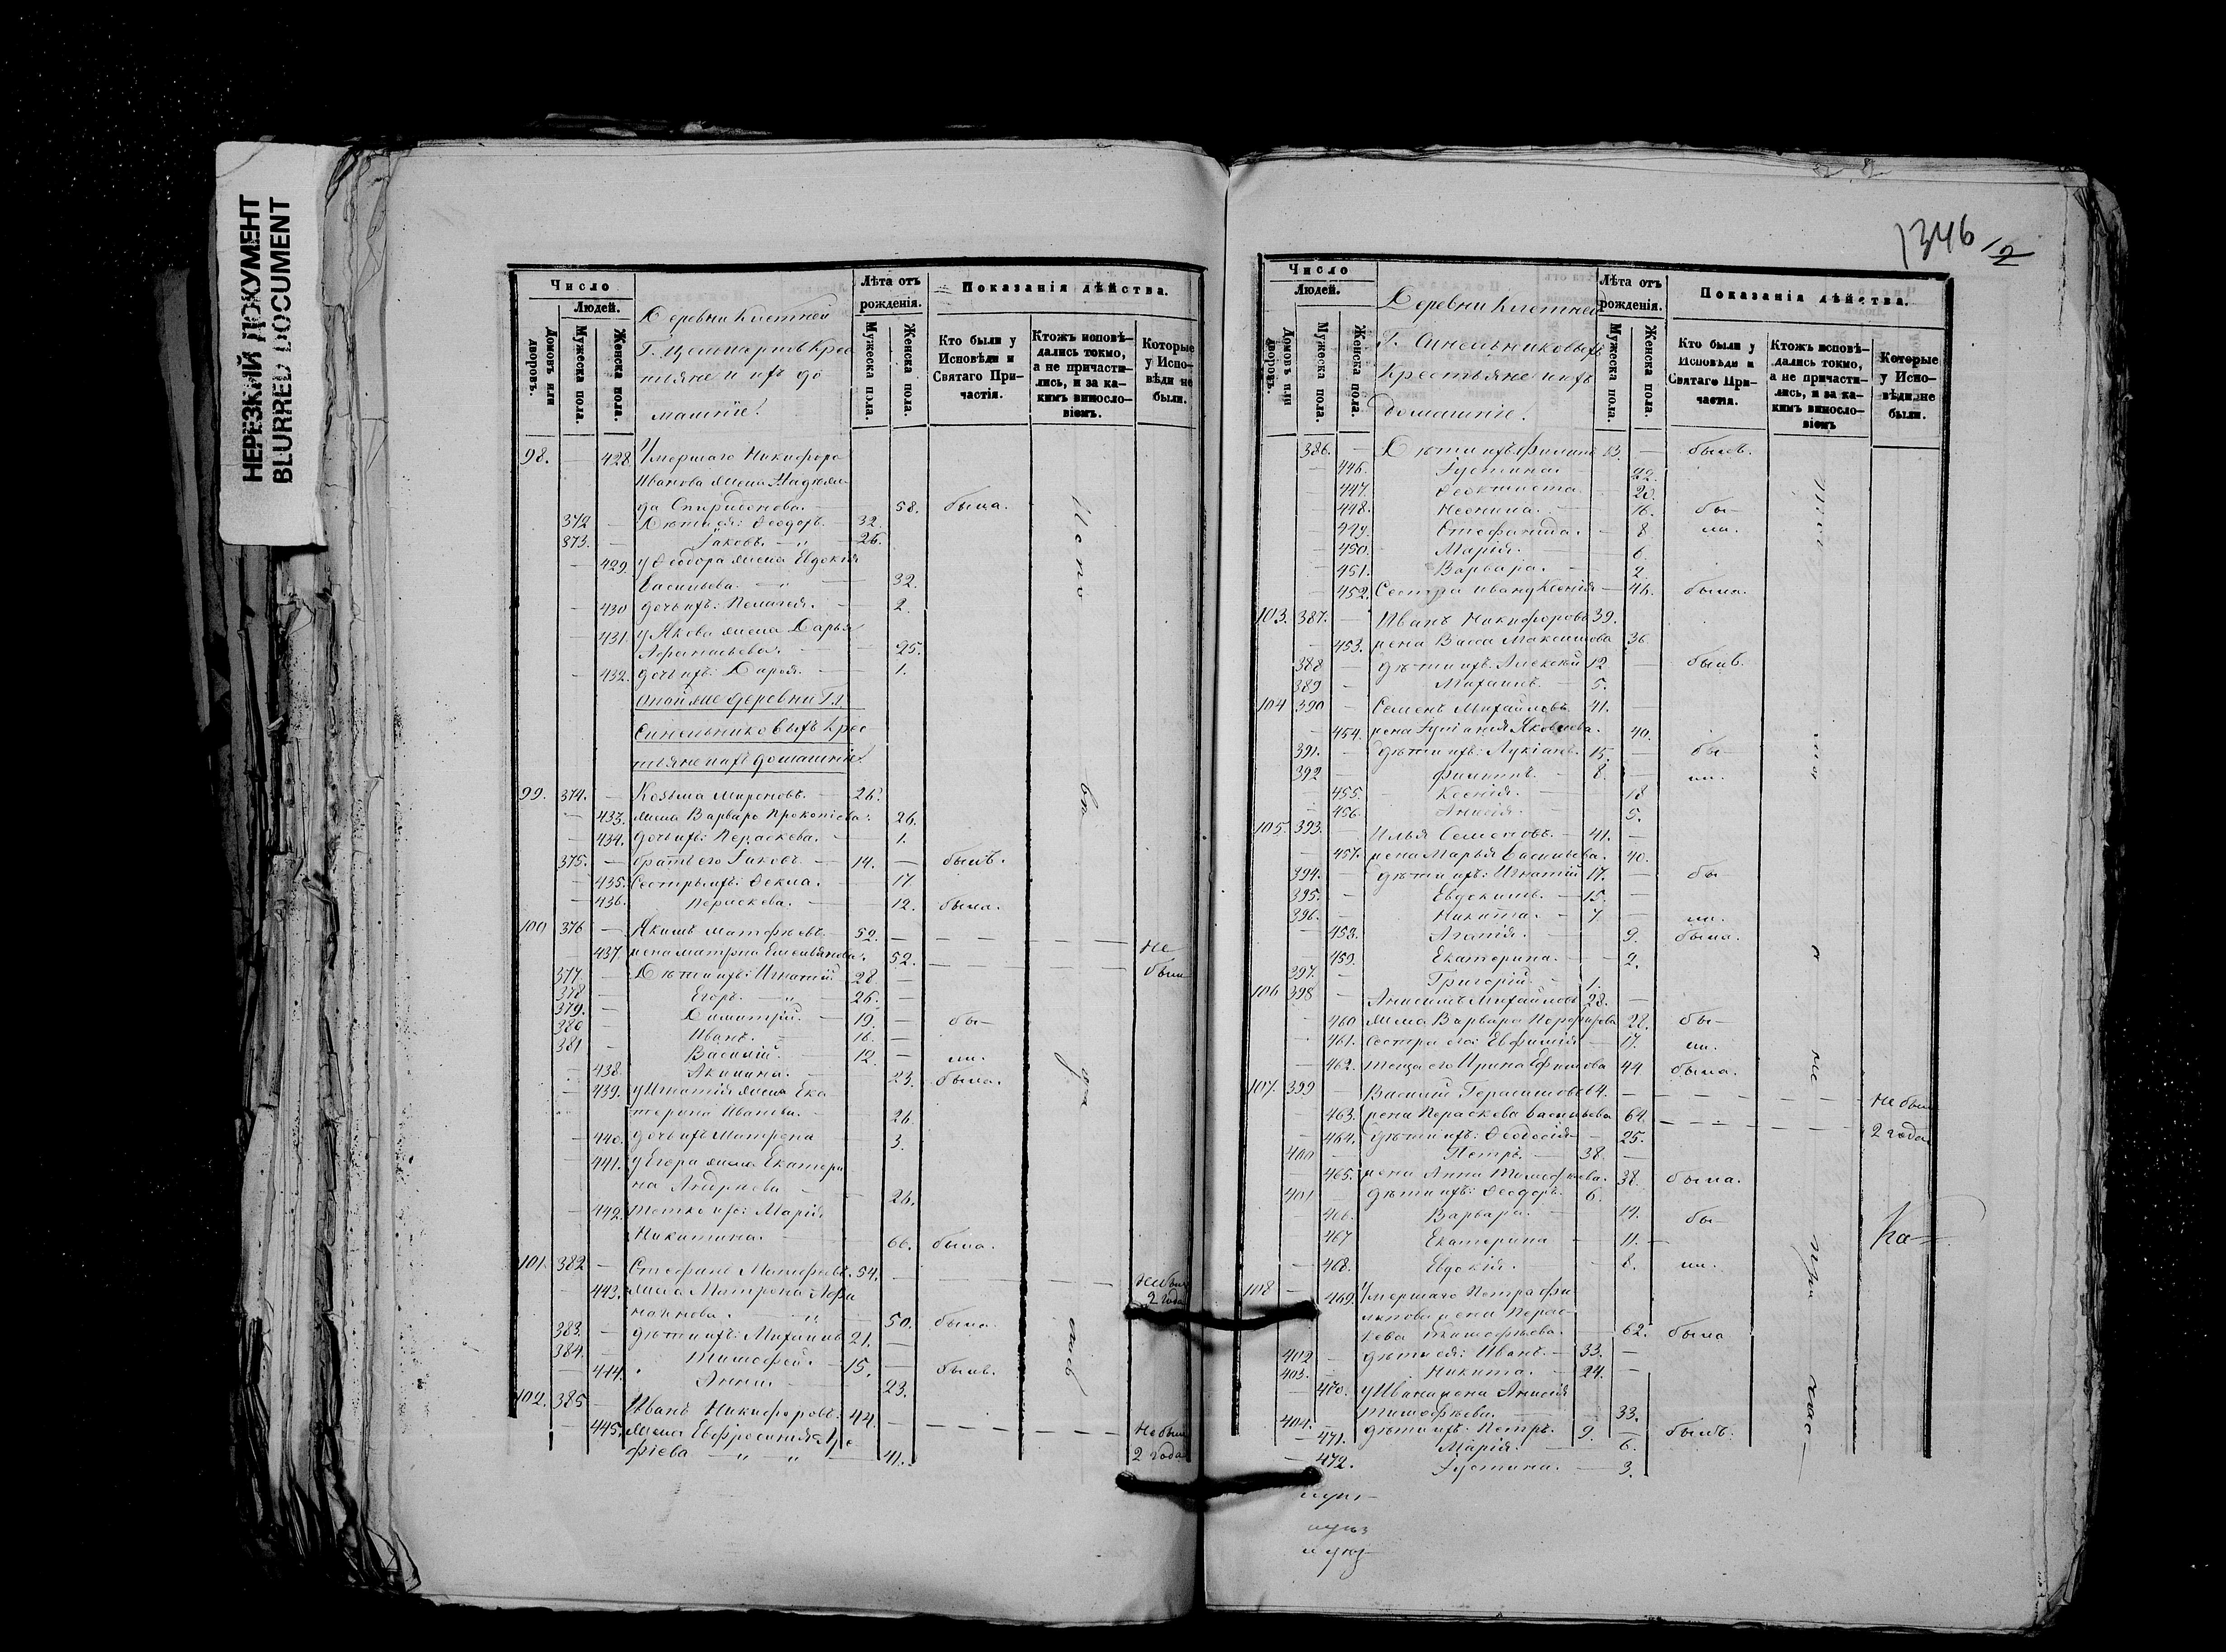 НЕРЕЗКИЙ ДОКУМЕНТ
BLURRED DOCUMENT
Число
Людей.
Домовъ или дворовъ.
Мужеска пола.
Женска пола.
Деревни Клетней
Г. Крес
тьяне и ихъ до
машніе.
Лѣта отъ рожденія.
Мужеска пола.
Женска пола.
Показанія дѣйства.
Кто были у Исповѣди и Святаго Причастія.
Ктожъ исповѣдались токмо, а не причастились, и за какимъ винословіемъ.
Которые у Исповѣди не были.
98. — 428. Умершаго Никифора
Иванова жена
Спиридонова. 58. была.
372 — Дѣти ея: Ѳеодоръ. 32.
373. — Іаковъ. — 26.
— 429. у Ѳеодора жена Евдокія
Васильева. — 32.
— 430 дочь ихъ: Пелагея. — 2.
— 431. у Якова жена Дарья
Афанасьева. — 25.
— 432. дочь ихъ: Дарья. — 1.
Оной же деревни Гг.
Синельниковыхъ крес
тьяне и ихъ домашніе.
99. 374. — Козьма Мироновъ. — 26.
— 433. жена Варвара Прокопіева. 26.
— 434. дочь ихъ: Параскева. — 1.
375. — братъ его Іаковъ. — 14. — былъ.
— 435. Сестры ихъ: Ѳекла. — 17.
— 436. Параскева. — 12. была.
100 376 — Якимъ Матѳѣевъ 52.
437. жена Матрона Емельянова. 52.
Не были
377 — Дѣти ихъ: Игнатій 28. —
378 — Егоръ. — 26. —
379. — Димитрій. — 19. — бы—
380 — Иванъ. — 16. —
381 — Василій. — 12 — ли.
438. Акилина. — 23. была.
— 439. у Игнатія жена Ека
терина Иванова. — 26.
— 440. дочь ихъ Матрона — 3.
— 441. у Егора жена Екатери
на Андреева — 26.
— 442. тетка ихъ: Марія
Никитина. — 66. была.
101. 382 — Стефанъ Матѳѣевъ. 54.
Не былъ
2 года
443. жена Матрона
50. была.
383. — дѣти ихъ: Михаилъ 21. —
384. — Тимоѳей. — 15. — былъ.
444. Анна. — 23.
102. 385 — Иванъ Никифоровъ. 44. —
445. жена Евфросинія
фіева — 41.
Не были
2 года
Испо
въ
дя
1346
12
Число
Людей.
Домовъ или дворовъ.
Мужеска пола.
Женска пола.
Деревни Клетней
Г. Синельниковыхъ
крестьяне и ихъ
домашніе.
Лѣта отъ рожденія.
Мужеска пола.
Женска пола.
Показанія дѣйства.
Кто были у Исповѣди и Святаго Причастія.
Ктожъ исповѣдались токмо, а не причастились, и за какимъ винословіемъ
Которые у Исповѣди не были.
386. — Дѣти ихъ: Филипъ 13. — былъ.
— 446. Іустина. 22.
— 447. Ѳеоктиста. 20.
— 448. Неонила. — 16. бы—
— 449. Стефанида. — 8 ли.
— 450. Марія. — 6.
— 451. Варвара. — 2.
— 452. Сестра Ивана Ксенія — 46. была.
103. 387. — Иванъ Никифоровъ 39.
— 453. жена Васса Максимова 36.
388 — дѣти ихъ. Алексѣй 12 — былъ.
389 — Михаилъ. — 5.
104 390 — Семенъ Михайловъ 41. —
— 454. жена Іуліанія Яковлева. 40.
391. — дѣти ихъ: Лукіанъ. 15. — бы—
392 — Филипъ. — 8. — ли.
— 455. Ксенія. — 18
— 456. Анисія. 5.
105. 393. — Илья Семеновъ. — 41. —
— 457. жена Марья Васильева. 40.
394. — дѣти ихъ: Игнатій 17. — бы—
395. — Евдокимъ. — 15. —
396. — Никита. — 7. — ли.
— 458. Агапія. — 9. была.
459. Екатерина. — 2.
397. Григорій. — 1.
106 398 — Анисимъ Михайловъ 28. —
— 460 жена Варвара Порфирова 28. бы—
— 461. Сестра его: Евфимія — 17. ли.
— 462. теща его Ирина Ефимова 44 была.
107. 399 — Василій Герасимовъ 64.
— 463. жена Параскева Васильева 62.
Не были
2 года
— 464. дѣти ихъ: Ѳеодосія — 25.
400 — Петръ. — 38. —
— 465. жена Анна Тимоѳѣева. 38. была.
401 — дѣти ихъ: Ѳеодоръ. 6.
— 466. Варвара. — 14. бы—
— 467 Екатерина — 11. —
— 468. Евдокія. — 8. ли.
108 — 469. Умершаго Петра Фи
липова жена Парас
кева Тимоѳѣева. — 62. была
402 — дѣти ея: Иванъ. — 33. —
403. — Никита. — 24. —
— 470. у Ивана жена Анисія
Тимоѳѣева. — 33.
404. — дѣти ихъ: Петръ. 9. — былъ.
— 471. Марія. — 6.
— 472. Іустина. — 3.